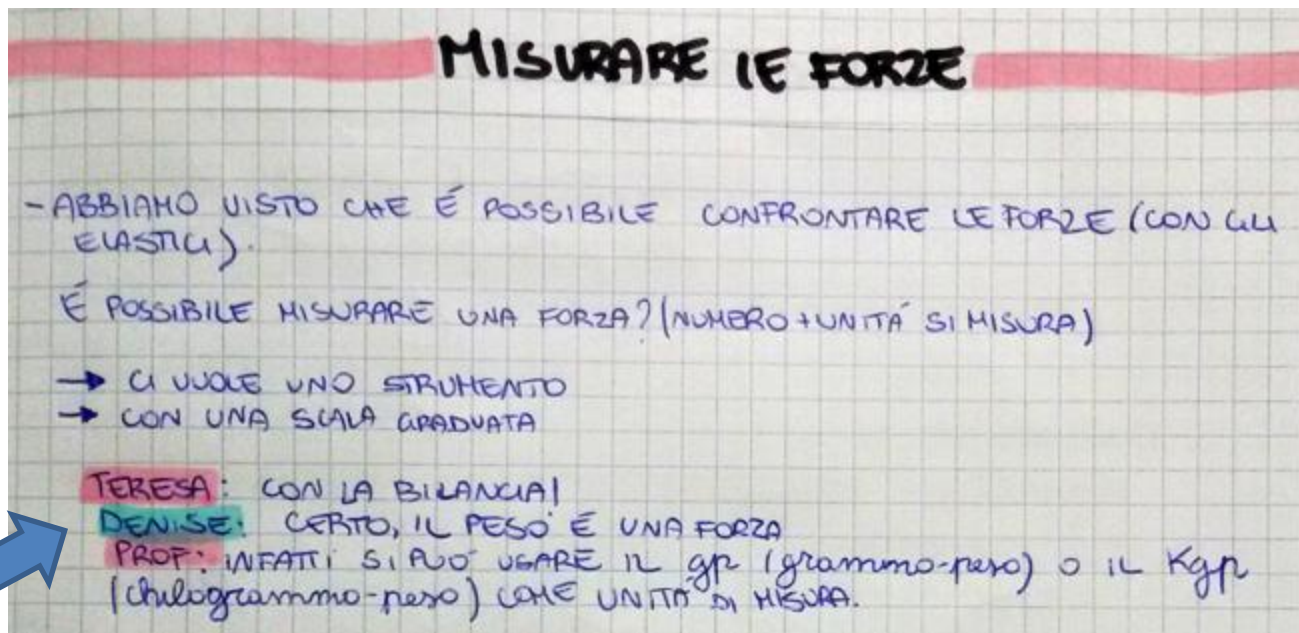 MISURARE LE FORZE
- ABBIAMO VISTO CHE É POSSIBILE CONFRONTARE LE FORZE (CON GLI
ELASTICI).
É POSSIBILE MISURARE UNA FORZA? (NUMERO + UNITÁ SI MISURA)
→ CI VUOLE UNO STRUMENTO
→ CON UNA SCALA GRADUATA
TERESA: CON LA BILANCIA!
DENISE: CERTO, IL PESO É UNA FORZA
PROF: INFATTI SI PUO' USARE IL gp (grammo-peso) O IL Kgp
(chilogrammo-peso) COME UNITÁ DI MISURA.